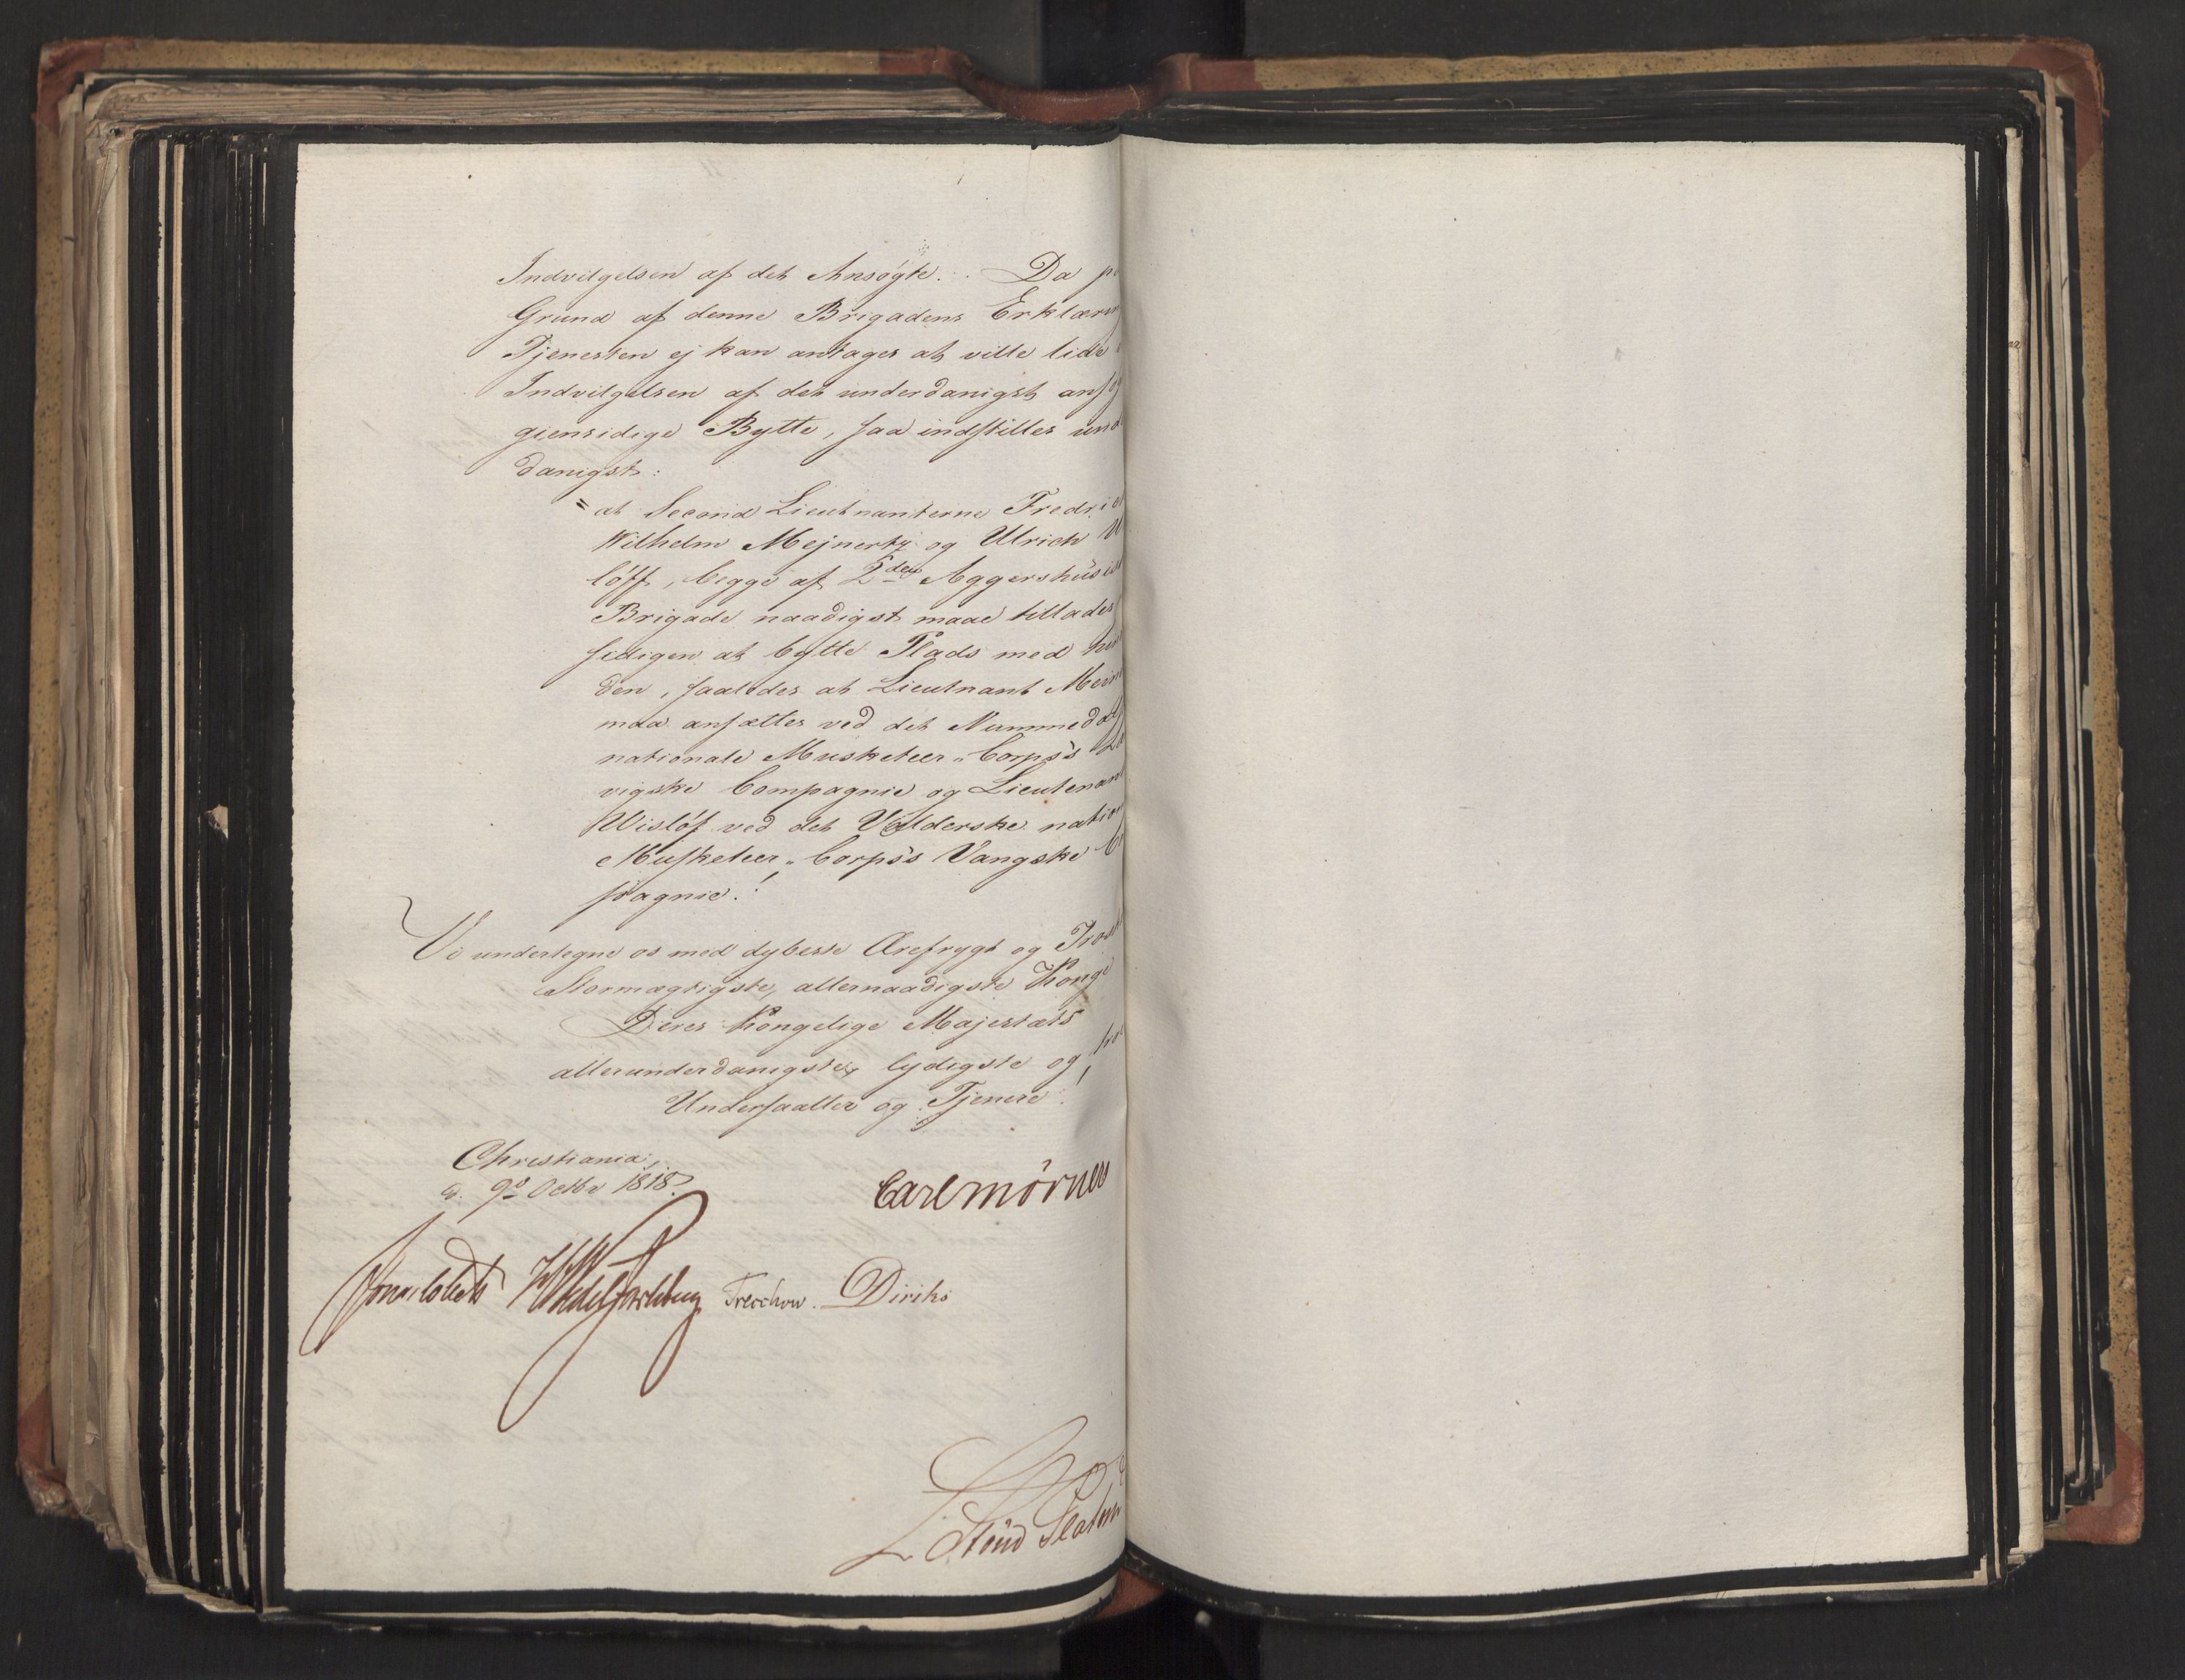 Indvilgelsen af det Ansøgte. Da p
Grund af denne Brigadens Erklærin
Tjenesten ej kan antages at ville lide
Indvilgelsen af det underdanigst ansøg
giensidige Bytte, saa indstilles und
danigst:
= at Second Lieutnanterne Fredric
Wilhelm Mejnertz og Ulrich W
löff, begge af 2den Aggershusisk
Brigade naadigst maae tillades
sidigen at bytte Plads med hin
den, saaledes at Lieutnant Mein
maa ansættes ved det Nummedal
nationale Musketeer-Corps's La
vigske Compagnie og Lieutenant
Wisløf ved det Valderske nation
Musketeer-Corps's Vangske Co
pagnie!
Vi undertegne os med dybeste Ærefrygt og Trosk
Stormægtigste, allernaadigste Konge
Deres Kongelige Majestæts
allerunderdanigste, lydigste og tro
Undersaatter og Tjenere!
Christiania,
d. 9de Octbr 1818.
Carl Mörner
Jonas Collett HWedelJarlsberg Treschow. Diriks
L. Stoud Platou